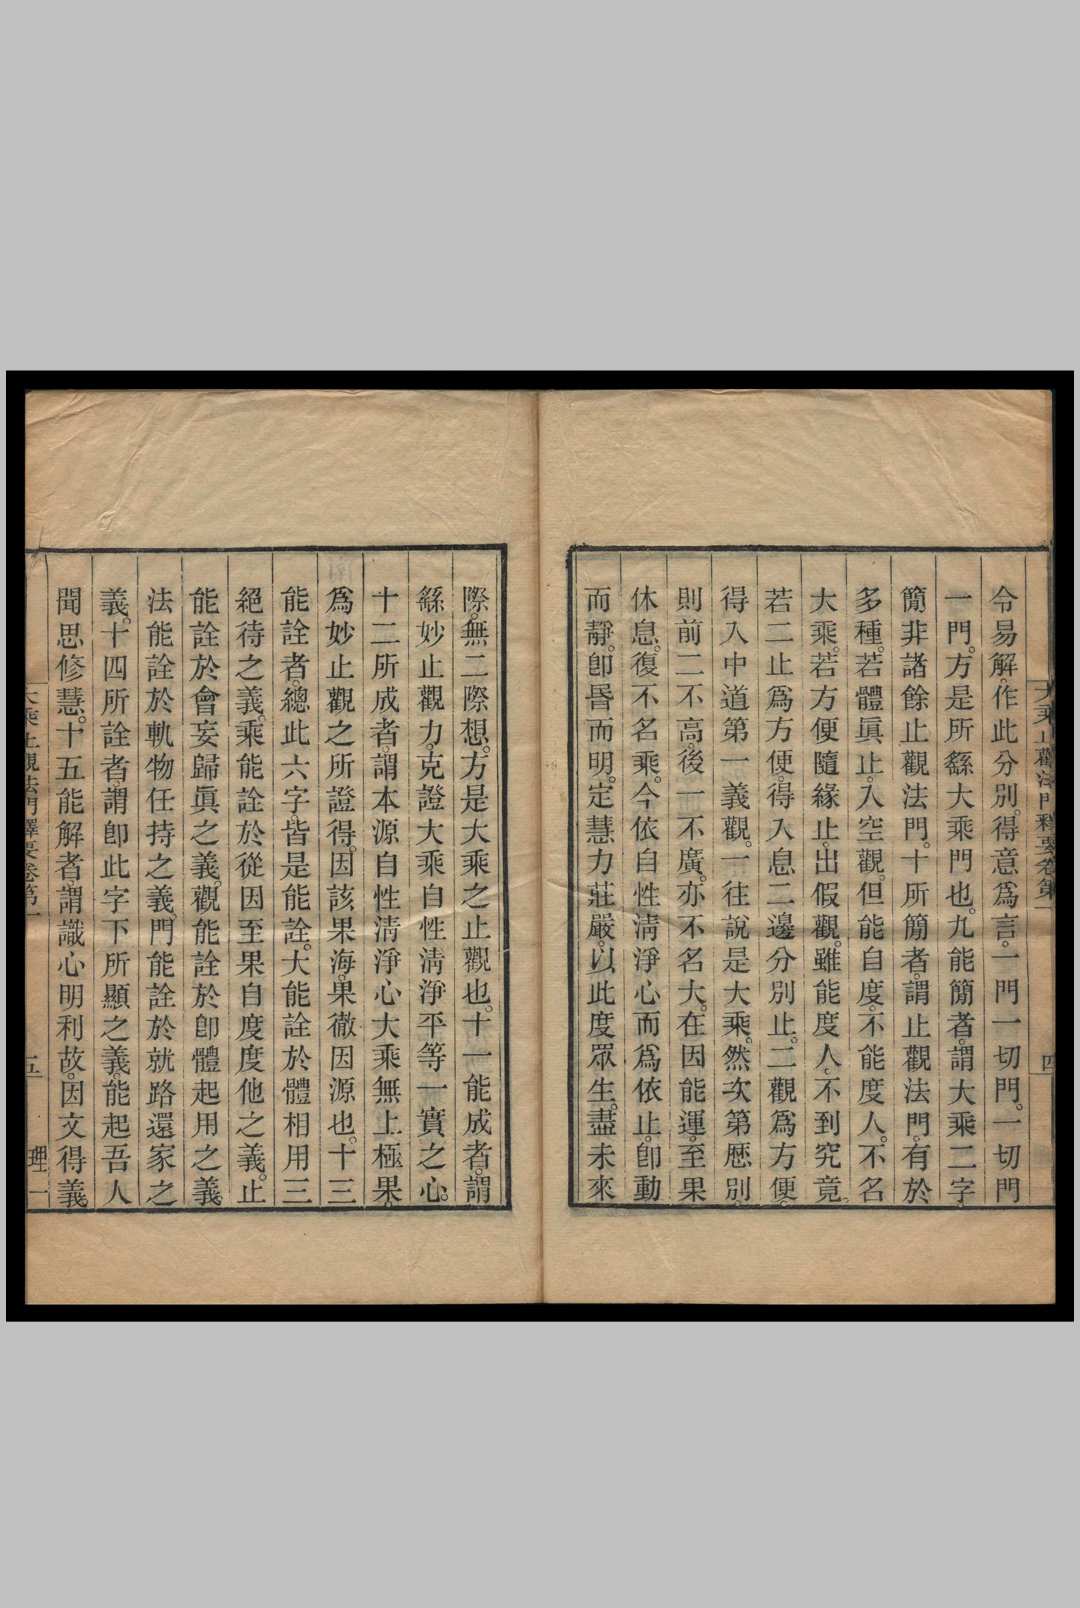 大乘止觀法門釋要卷第一 四
令易解。作此分別。得意爲言。一門一切門。一切門
一門。方是所繇大乘門也。九能簡者。謂大乘二字。
簡非諸餘止觀法門。十所簡者。謂止觀法門。有於
多種。若體眞止。入空觀。但能自度。不能度人。不名
大乘。若方便隨緣止。出假觀。雖能度人。不到究竟。
若二止爲方便。得入息二邊分別止。二觀爲方便。
得入中道第一義觀。一往說是大乘。然次第歷別。
則前二不高。後一不廣。亦不名大。在因能運。至果
休息。復不名乘。今依自性清淨心而爲依止。卽動
而靜。卽昏而明。定慧力莊嚴。以此度眾生。盡未來
際。無二際想。方是大乘之止觀也。十一能成者。謂
繇妙止觀力。克證大乘自性清淨平等一實之心。
十二所成者。謂本源自性清淨心大乘無上極果。
爲妙止觀之所證得。因該果海。果徹因源也。十三
能詮者。總此六字。皆是能詮。大能詮於體相用三
絕待之義。乘能詮於從因至果自度度他之義。止
能詮於會妄歸眞之義。觀能詮於卽體起用之義
法能詮於軌物任持之義。門能詮於就路還家之
義。十四所詮者。謂卽此字下所顯之義。能起吾人
聞思修慧。十五能解者。謂識心明利故。因文得義。
大乘止觀法門釋要卷第一 五 理一